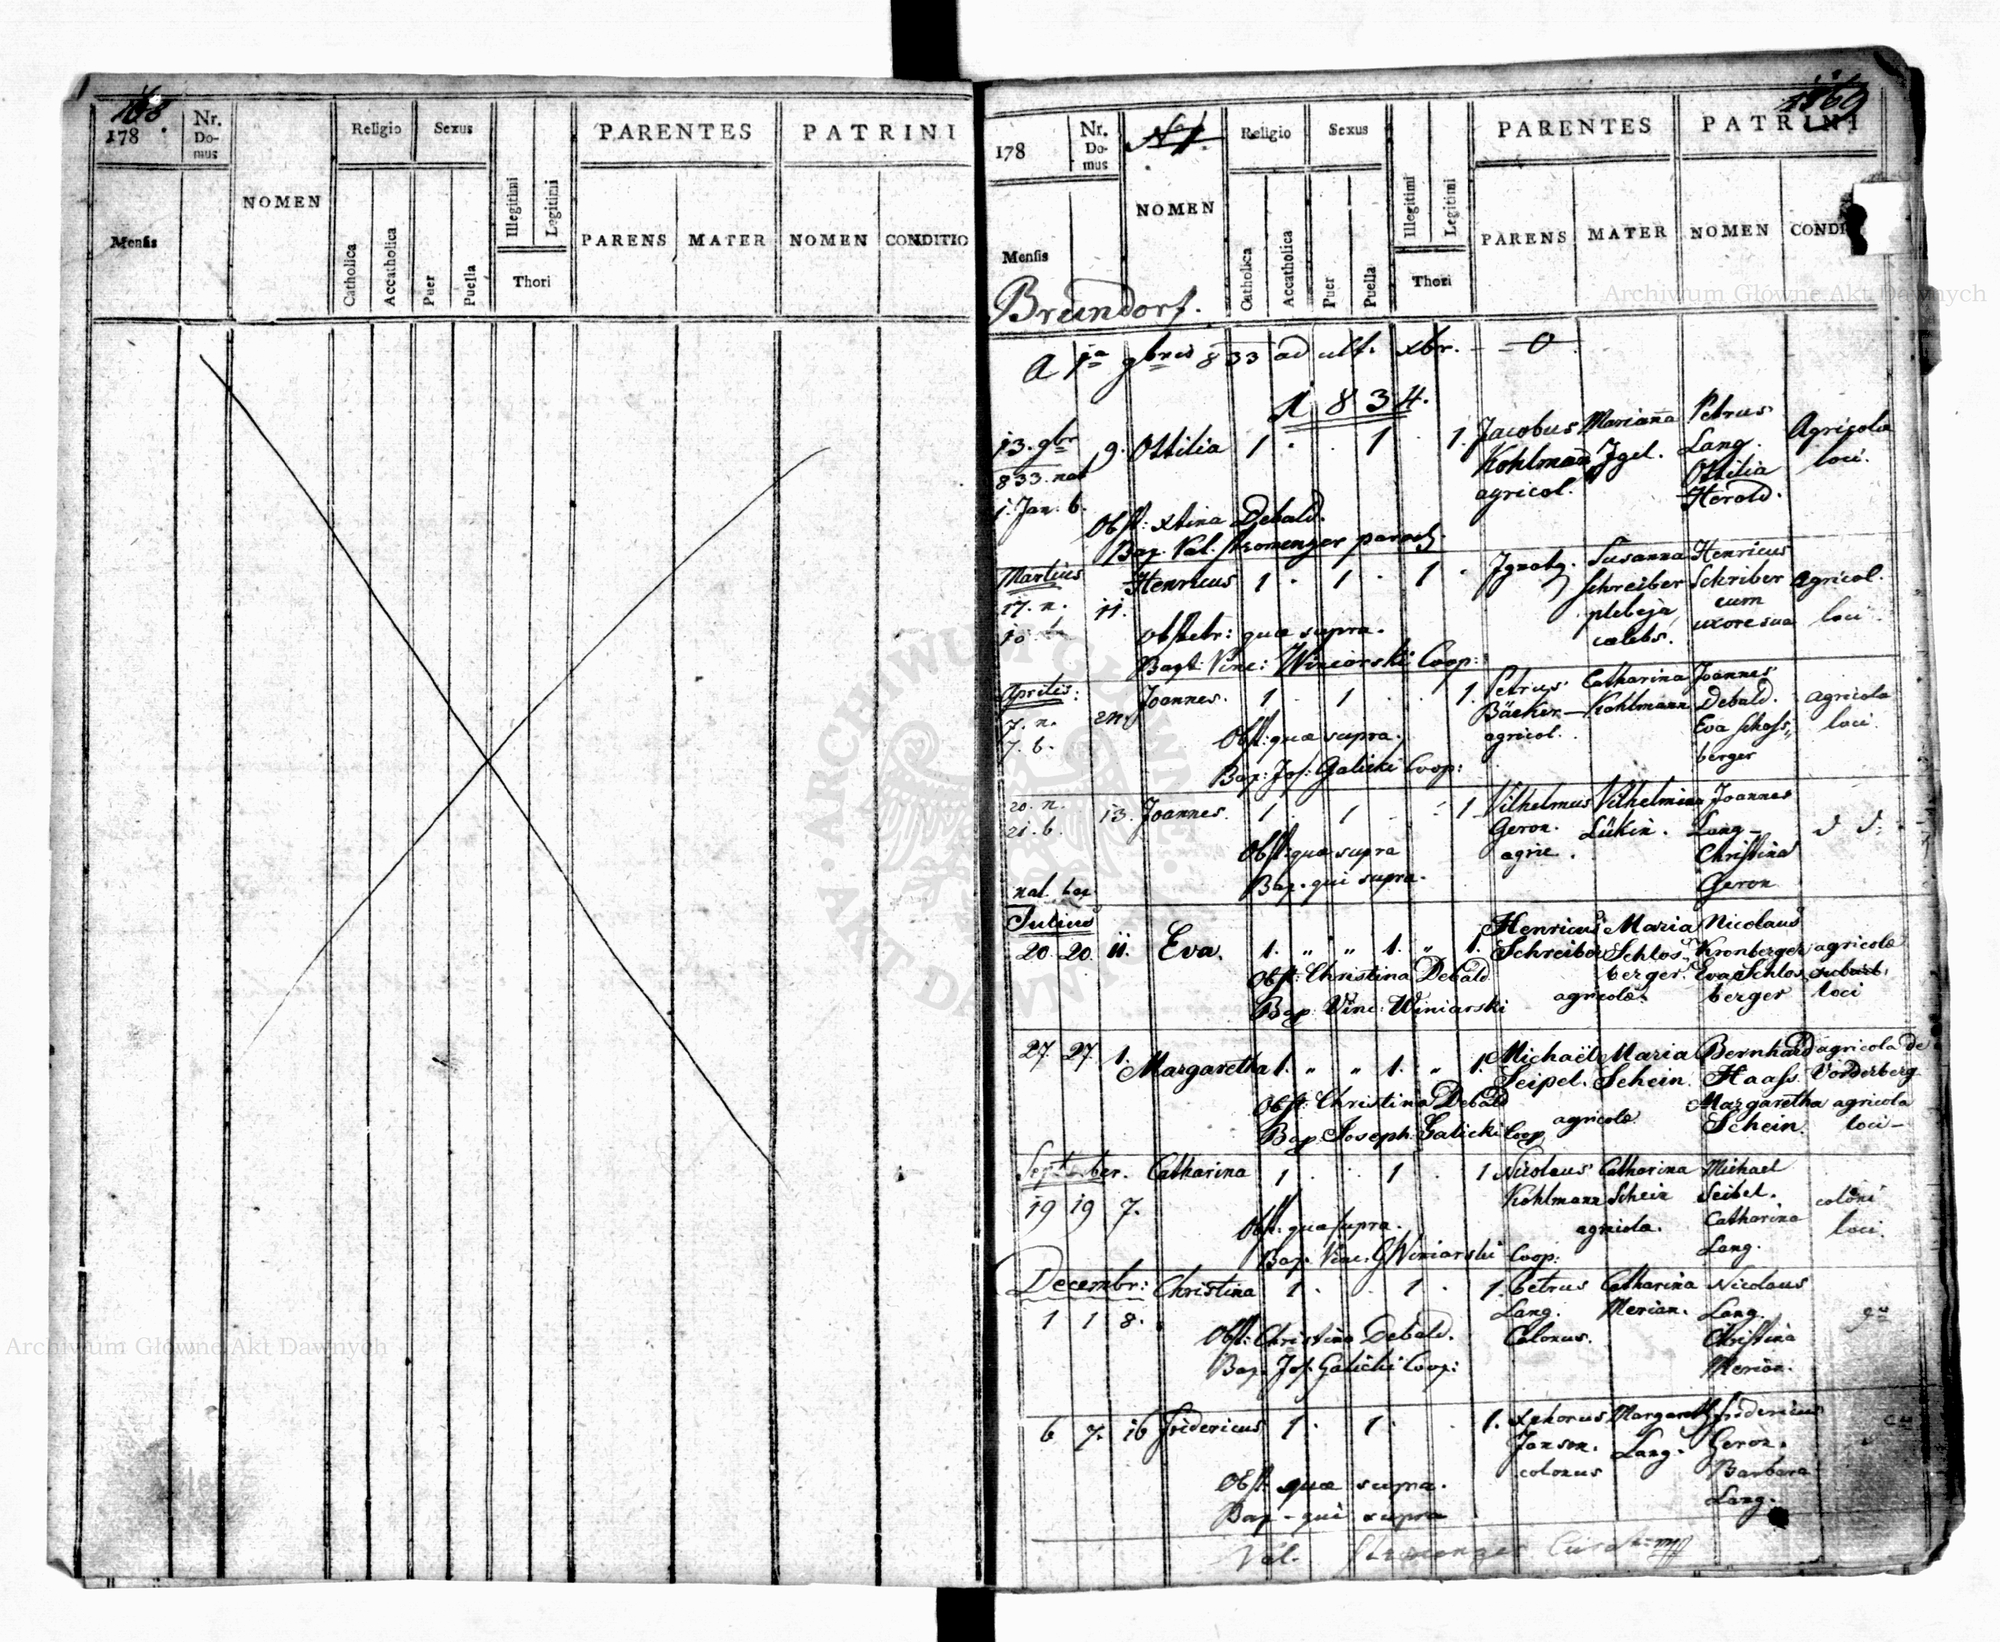 168.
178
Nr. Domus
NOMEN
Religio
Sexus
PARENTES
PATRINI
Mensis
Catholica
Accatholica
Puer
Puella
Illegitimi
Legitimi
Thori
PARENS
MATER
NOMEN
CONDITIO
169
178
Nr. Domus
NOMEN
Religio
Sexus
PARENTES
PATRINI
Mensis
Catholica
Accatholica
Puer
Puella
Illegitimi
Legitimi
Thori
PARENS
MATER
NOMEN
CONDI
Brundorf.
A 1a 9bris 833 ad ult. xbr. - - 0
1834.
13. 9br 9. Ottilia 1 . . 1 . 1. Jacobus Marianna Petrus Agricola
833. nat Kohlmann Igel. Lang. loci.
1. Jan. b. agricol. Ottilia
Herold.
Obst: Xtina Debald.
Bap. Val. Stromenger paroch.
Martius Henricus 1 . 1 . 1 . Ignotg. Susanna Henricus
17. n. 11. Schreiber Schriber agricol.
plebeja cum loci
caelebs. uxore sua
Obstetr: quae supra.
Bapt: Vinc: Winiarski Coop:
Aprilis: Joannes. 1 . 1 . . 1. Petrus Catharina Joannes
7. n. Bäcker Kohlmann Debald. agricola
7. b. agricol. Eva Schoss, loci.
berger
Obst: quae supra.
Bap: Jos: Galicki Coop:
20. n. 13. Joannes. 1 . 1 . . 1 Vilhelmus Vilhelmina Joannes
21. b. Geron. Lükin. Lang - d d:
agric. Christina
Geron
Obst: quae supra
Bap. qui supra.
nat. bap
Julius
20. 20. 11. Eva. 1. " " 1. " 1. Henricus Maria Nicolaus
Schreiber Schlos- Kronberger agricolæ
berger. Eva Schlos
agricolæ. berger loci
Obst: Christina Debald
Bap: Vinc: Winiarski
27. 27. 1. Margaretha 1. " " 1. " 1. Michaël Maria Bernhard agricola de
Seipel. Schein. Haass. Vorderberg
agricolæ Margaretha agricola
Schein. loci -
Obst: Christina Debald
Bap: Joseph: Galicki Coop
September. Catharina 1 . . 1 . 1 Nicolaus Catharina Michael
19 19 7. Kohlmann Schein Seibel. coloni
agricola. Catharina loci.
Lang.
Obst: quae supra.
Bap. Vinc. Winiarski Coop:
Decembr: Christina 1 . . 1 . 1. Petrus Catharina Nicolaus
1 1 8. Lang. Merian. Lang.
Colonus. Christina
Merian.
Obst: Christina Debald.
Bap. Jos. Galicki Coop:
6 7. 16 Fridericus 1 . 1 . . 1. Xphorus Margareth Fridericus
Janson. Lang. Geron.
colonus Barbara
Lang.
Obst quae supra.
Bap - qui supra
Val. Stromenger
Archiwum Główne Akt Dawnych
Archiwum Główne Akt Dawnych
ARCHIWUM GŁÓWNE AKT DAWNYCH